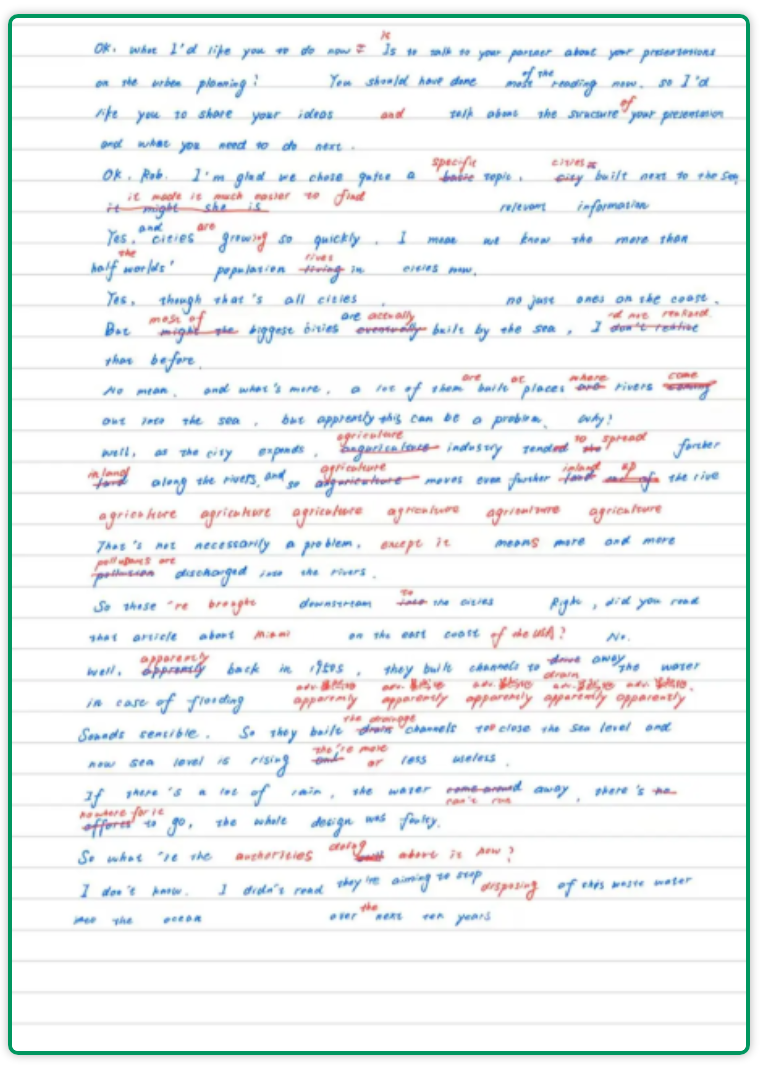 is
OK. what I'd like you to do now Is to talk to your partner about your presentations
of the
on the urben planning? You should have done most reading now. so I'd
like you to share your ideas and talk about the structure of your presentation
and what you need to do next.
specific cities
OK. Rob. I'm glad we chose quite a basic topic. city built next to the sea,
it made it much easier to find
it might she is relevant information
and are
Yes, cities growing so quickly. I mean we know the more than
the rives
half worlds' population living in cities now.
Yes, though that's all cities, no just ones on the coast.
most of are actually 'd not realized.
But might the biggest cities eventually built by the sea, I don't realize
that before.
are at where come
No mean, and what's more, a lot of them built places are rivers coming
out into the sea, but apprently this can be a problem. Why?
agriculture to spread
well, as the city expends, anguriculture industry tended the further
inland and agriculture inland up
land along the rivers, so aguriculture moves even further land the rive
agriculture agriculture agriculture agriculture agriculture agriculture
That's not necessarily a problem, except it means more and more
pollutants are
pollution discharged into the rivers.
to
So those 're brought downstream into the cities Right, did you read
that article about Miami on the east coast of the USA? No.
apparently
well, apprently back in 1950s, they built channels to drive away the water
drain
in case of flooding apparently apparently apparently apparently apparently
the drainage
Sounds sensible. So they built drain channels too close the sea level and
the're more
now sea level is rising and or less useless.
If there's a lot of rain, the water come around away, there's no
can't run
nowhere for it
efforts to go, the whole design was faulty.
doing
So what 're the authorities about it now?
I don't know. I didn't read they're aiming to stop disposing of this waste water
the
into the ocean over next ten years